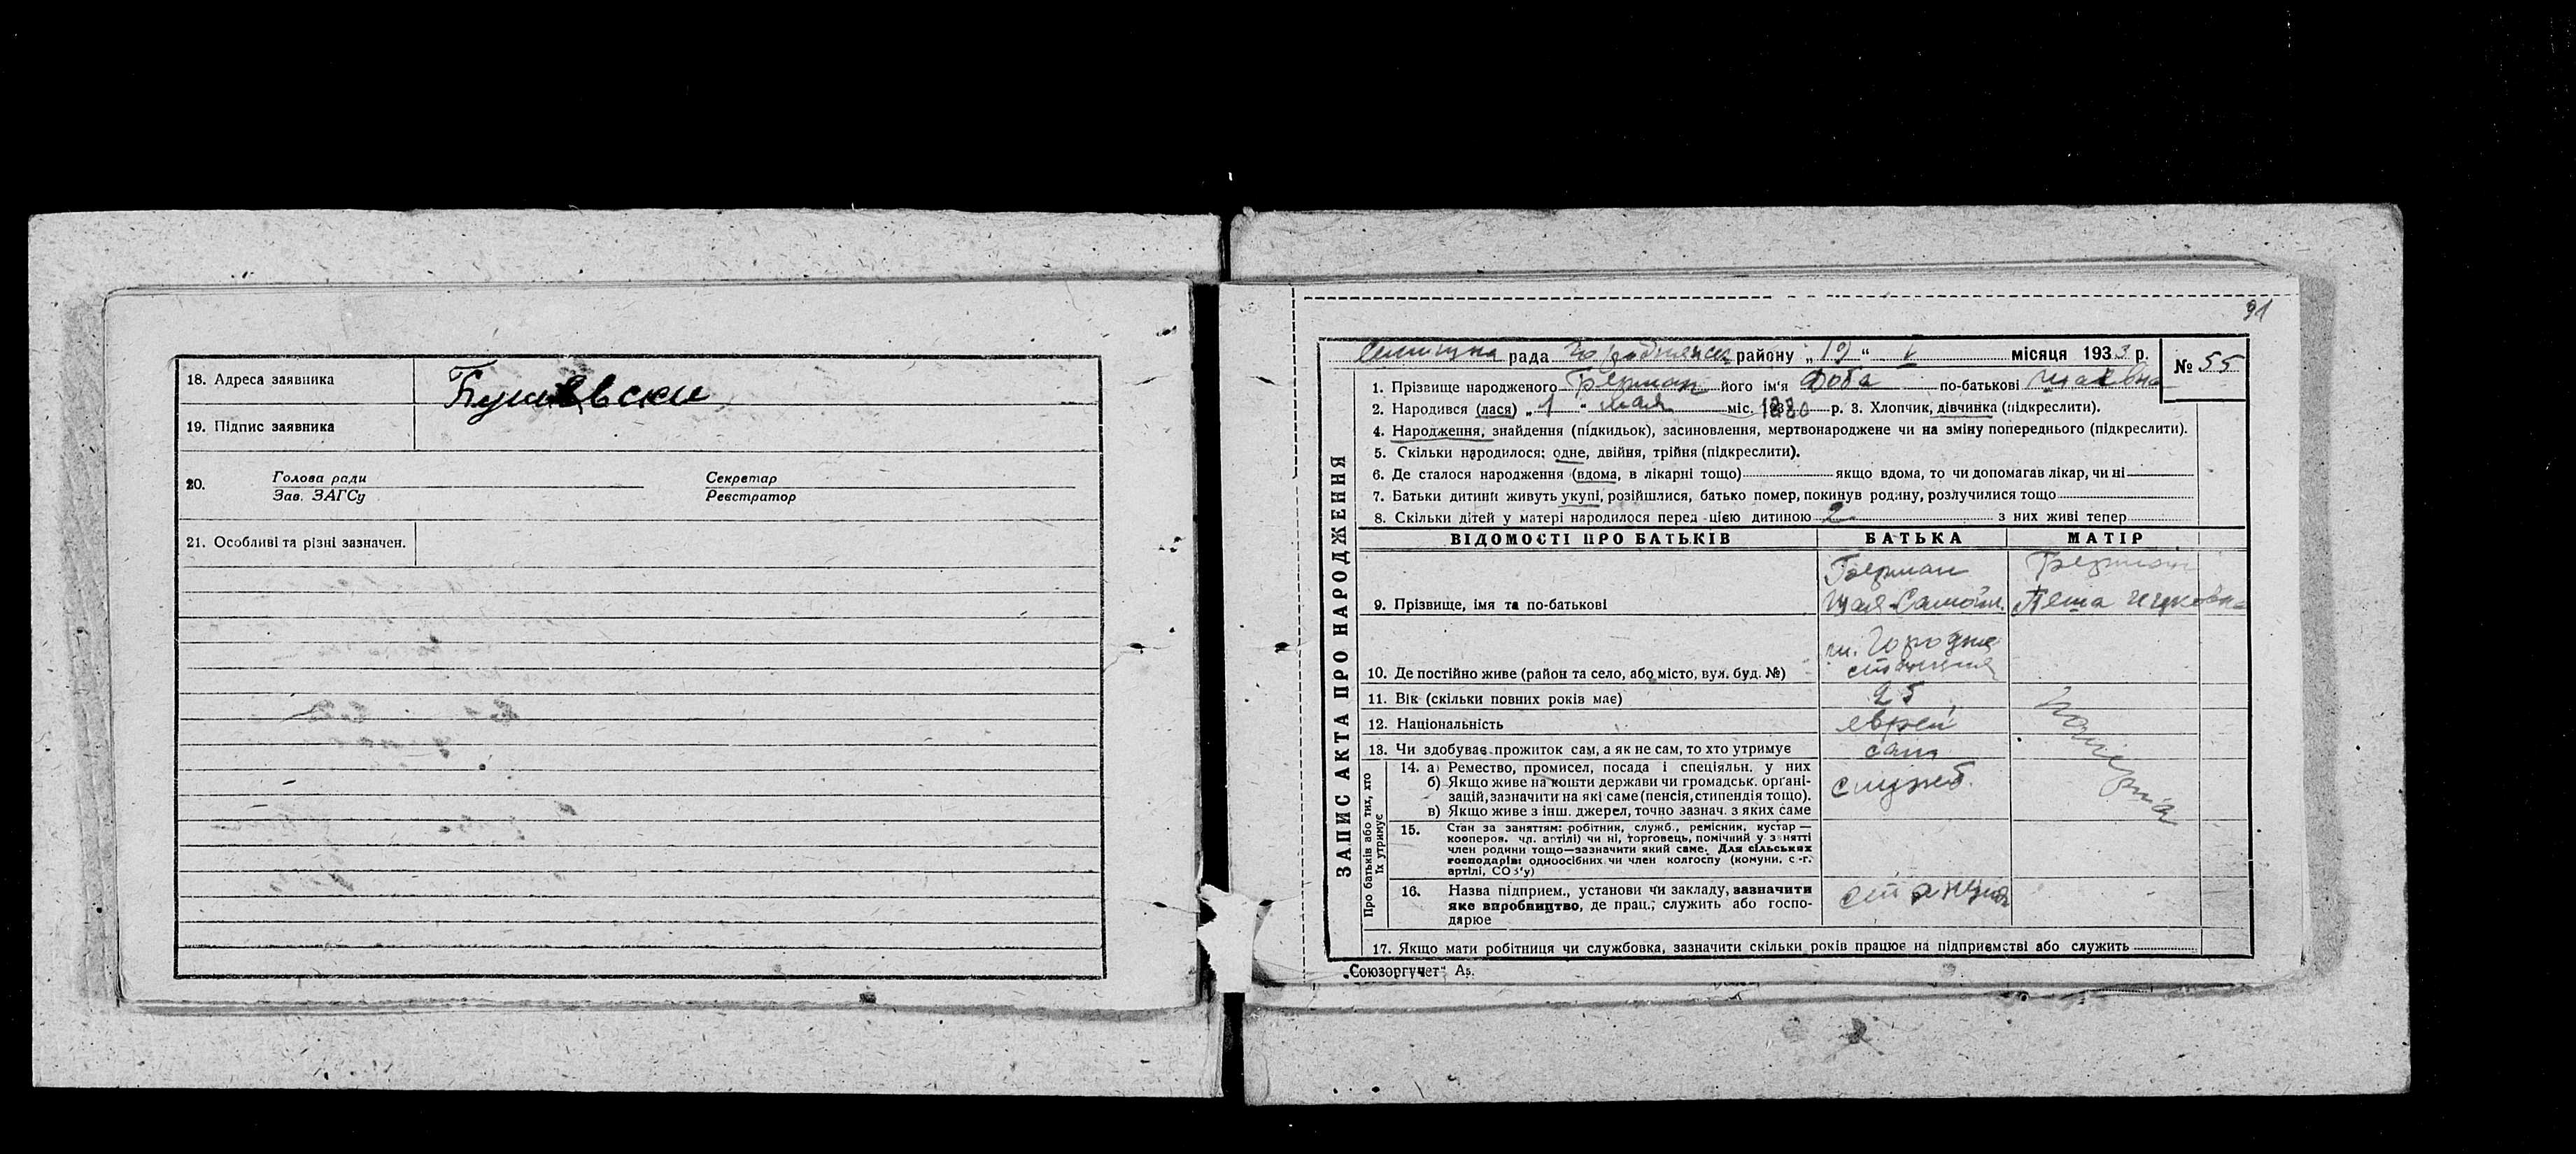 18. Адреса заявника
19. Підпис заявника
20. Голова ради Секретар
Зав. ЗАГСу Реєстратор
21. Особливі та різні зазначен.
91
рада району „19“ V місяця 1933 р. № 55
ЗАПИС АКТА ПРО НАРОДЖЕННЯ
1. Прізвище народженого Берман його ім'я Доба по-батькові Шаевна
2. Народився (лася) „1“ мая міс. р. 3. Хлопчик, дівчинка (підкреслити).
4. Народження, знайдення (підкидьок), засиновлення, мертвонароджене чи на зміну попереднього (підкреслити).
5. Скільки народилося: одне, двійня, трійня (підкреслити).
6. Де сталося народження (вдома, в лікарні тощо) якщо вдома, то чи допомагав лікар, чи ні
7. Батьки дитини живуть укупі, розійшлися, батько помер, покинув родину, розлучилися тощо
8. Скільки дітей у матері народилося перед цією дитиною 2 з них живі тепер
ВІДОМОСТІ ПРО БАТЬКІВ БАТЬКА МАТІР
Берман Берман
9. Прізвище, імя та по-батькові Шая Самойл. Пеша
м. Городня
10. Де постійно живе (район та село, або місто, вул. буд. №) станция
11. Вік (скільки повних років має) 25
12. Національність еврей
13. Чи здобуває прожиток сам, а як не сам, то хто утримує сам
Про батьків або тих, хто їх утримує
14. а) Ремество, промисел, посада і спеціяльн. у них
б) Якщо живе на кошти держави чи громадськ. органі- служб.
зацій, зазначити на які саме (пенсія, стипендія тощо).
в) Якщо живе з інш. джерел, точно зазнач. з яких саме
15. Стан за заняттям: робітник, служб., ремісник, кустар —
кооперов. чл. артілі) чи ні, торговець, помічний у занятті
член родини тощо—зазначити який саме. Для сільських
господарів: одноосібних чи член колгоспу (комуни, с.-г.
артілі, СОЗ'у)
16. Назва підприєм., установи чи закладу, зазначити станция
яке виробництво, де прац., служить або госпо-
дарює
17. Якщо мати робітниця чи службовка, зазначити скільки років працює на підприємстві або служить
„Союзоргучет“ А5.